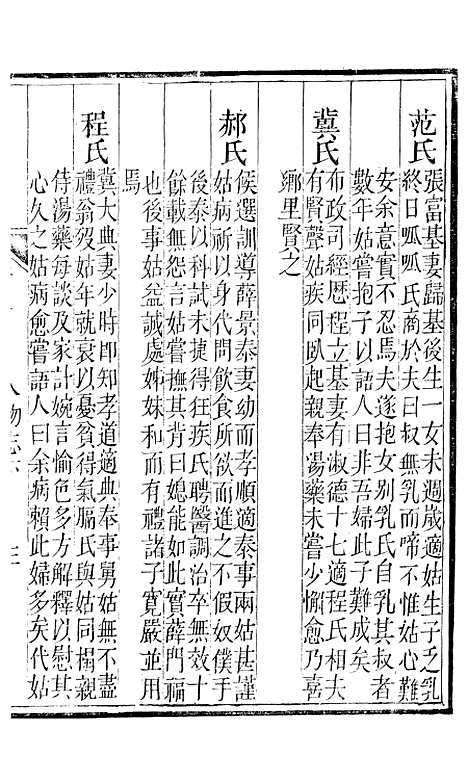 范氏張富基妻歸基後生一女未週歲適姑生子乏乳
終日呱呱氏商於夫曰叔無乳而啼不惟姑心難
安余意實不忍焉夫遂抱女别乳氏自乳其叔者
數年姑嘗抱子以語人曰非吾婦此子難成矣
冀氏布政司經歴程立基妻有淑德十七適程氏相夫
有賢聲姑疾同臥起親奉湯藥未嘗少懈愈乃喜
鄉里賢之
郝氏候選訓導薛景泰妻幼而孝順適泰事兩姑甚謹
姑病祈以身代問飲食所欲而進之不假奴僕手
後泰以科試未捷得狂疾氏聘醫調治卒無效十
餘載無怨言姑嘗撫其背曰媳能如此實薛門福
也後事姑益誠處姊妹和而有禮諸子寛嚴並用
焉
程氏冀大典妻少時即知孝道適典奉事舅姑無不盡
禮翁歿姑年就衰以憂貧得氣膈氏與姑同榻親
侍湯藥每談及家計婉言愉色多方解釋以慰其
心久之姑病愈嘗語人曰余病賴此婦多矣代姑
人物志六 三